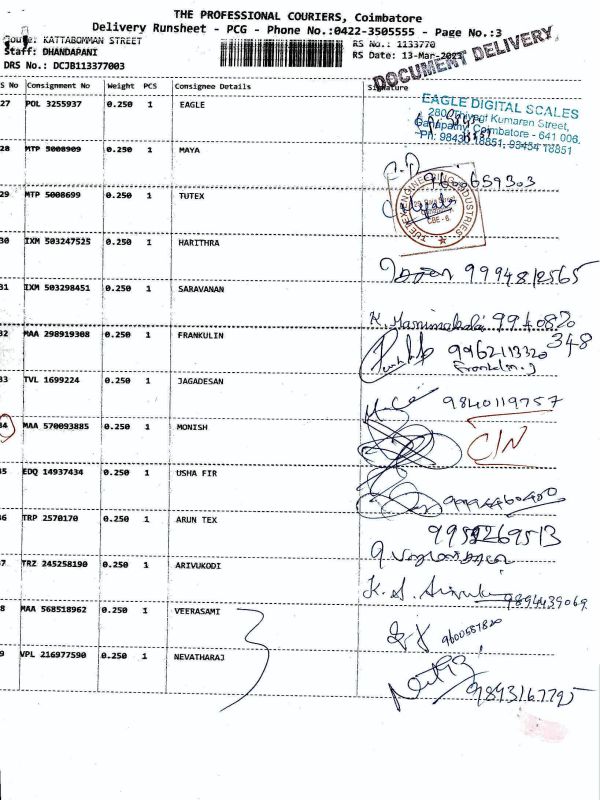 THE PROFESSIONAL COURIERS, Coimbatore
Delivery Runsheet - PCG - Phone No.:0422-3505555 - Page No.:3
KATTABOMMAN STREET
RS No.: 1133770
Staff: DHANDAPANI
RS Date: 13-Mar-2023
DRS No.: DCJB113377003
DOCUMENT DELIVERY
S No Consignment No Weight PCS Consignee Details Signature
27 POL 3255937 0.250 1 EAGLE
EAGLE DIGITAL SCALES
Kumaran Street,
Ganapathy, Coimbatore - 641 006.
28 MTP 5008909 0.250 1 MAYA
9600659303
29 MTP 5008699 0.250 1 TUTEX
ENGINEERING INDUSTRIES
CBE - 6.
30 IXM 503247525 0.250 1 HARITHRA
31 IXM 503298451 0.250 1 SARAVANAN
K. Manimekalai 9940820
348
32 MAA 298919308 0.250 1 FRANKULIN
9962113320
33 TVL 1699224 0.250 1 JAGADESAN
9840119757
34 MAA 570093885 0.250 1 MONISH
C/N
35 EDQ 14937434 0.250 1 USHA FIR
36 TRP 2570170 0.250 1 ARUN TEX
37 TRZ 245258190 0.250 1 ARIVUKODI
K. S. 9894439069
38 MAA 568518962 0.250 1 VEERASAMI
9600557820
39 VPL 216977590 0.250 1 NEVATHARAJ
9843167795